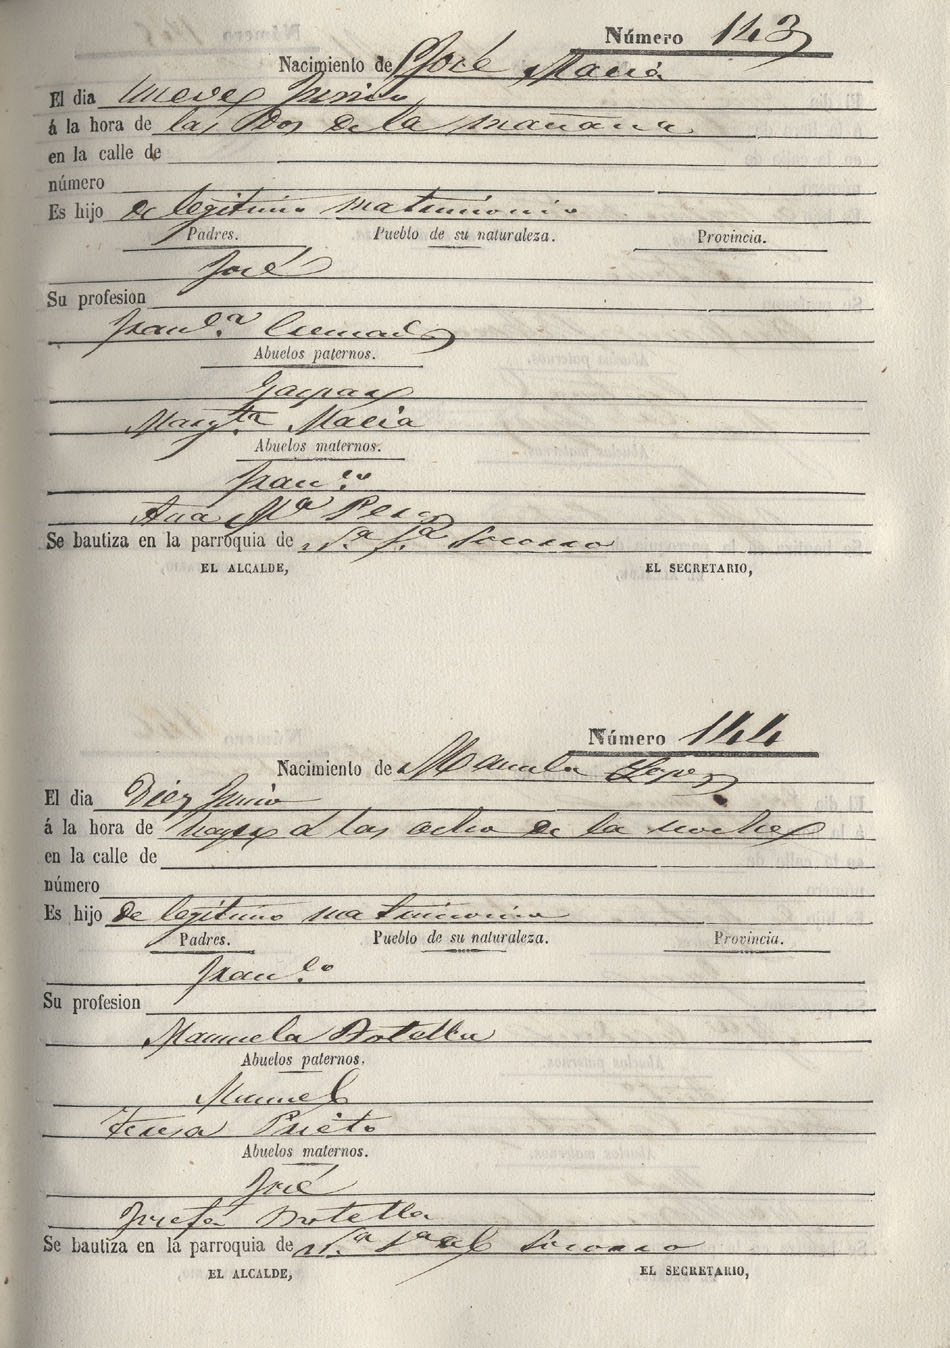 Número 143
Nacimiento de José Maciá
El dia nueve Junio
á la hora de las Dos de la mañana
en la calle de
número
Es hijo de legitimo matrimonio
Padres. Pueblo de su naturaleza. Provincia.
José
Su profesion
Franca. Cremades
Abuelos paternos.
Gaspar
Margta. Maciá
Abuelos maternos.
Franco.
Ana Ma Perez
Se bautiza en la parroquia de Na. Sa. Socorro
EL ALCALDE, EL SECRETARIO,
Número 144
Nacimiento de Manuela Lopez
El dia Diez Junio
á la hora de a las ocho de la noche
en la calle de
número
Es hijo de legitimo matrimonio
Padres. Pueblo de su naturaleza. Provincia.
Franco.
Su profesion
Manuela Botella
Abuelos paternos.
Manuel
Teresa Prieto
Abuelos maternos.
José
Josefa Botella
Se bautiza en la parroquia de Na. Sa del Socorro
EL ALCALDE, EL SECRETARIO,